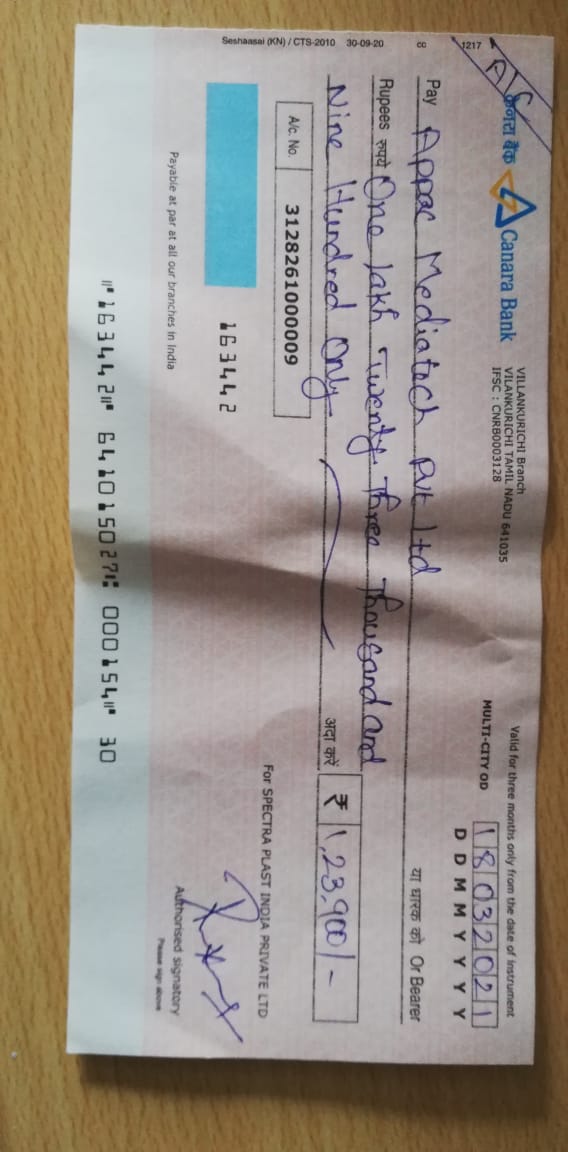 Seshaasai (KN) / CTS-2010 30-09-20 CC 1217
A/C
केनरा बैंक Canara Bank
VILLANKURICHI Branch
VILANKURICHI TAMIL NADU 641035
IFSC : CNRB0003128
Valid for three months only from the date of instrument
MULTI-CITY OD 18032021
D D M M Y Y Y Y
Pay Appac Mediatech Pvt ltd या धारक को Or Bearer
Rupees रुपये One lakh Twenty Three Thousand and
Nine Hundred Only अदा करें ₹ 1,23,900/-
A/c. No. 3128261000009
For SPECTRA PLAST INDIA PRIVATE LTD
163442
Authorised signatory
Please sign above
Payable at par at all our branches in India
⑈163442⑈ 641015027⑆ 000154⑈ 30